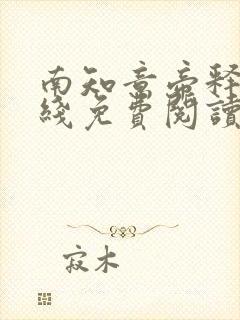 南知意帝释
线免费阅读
寂木